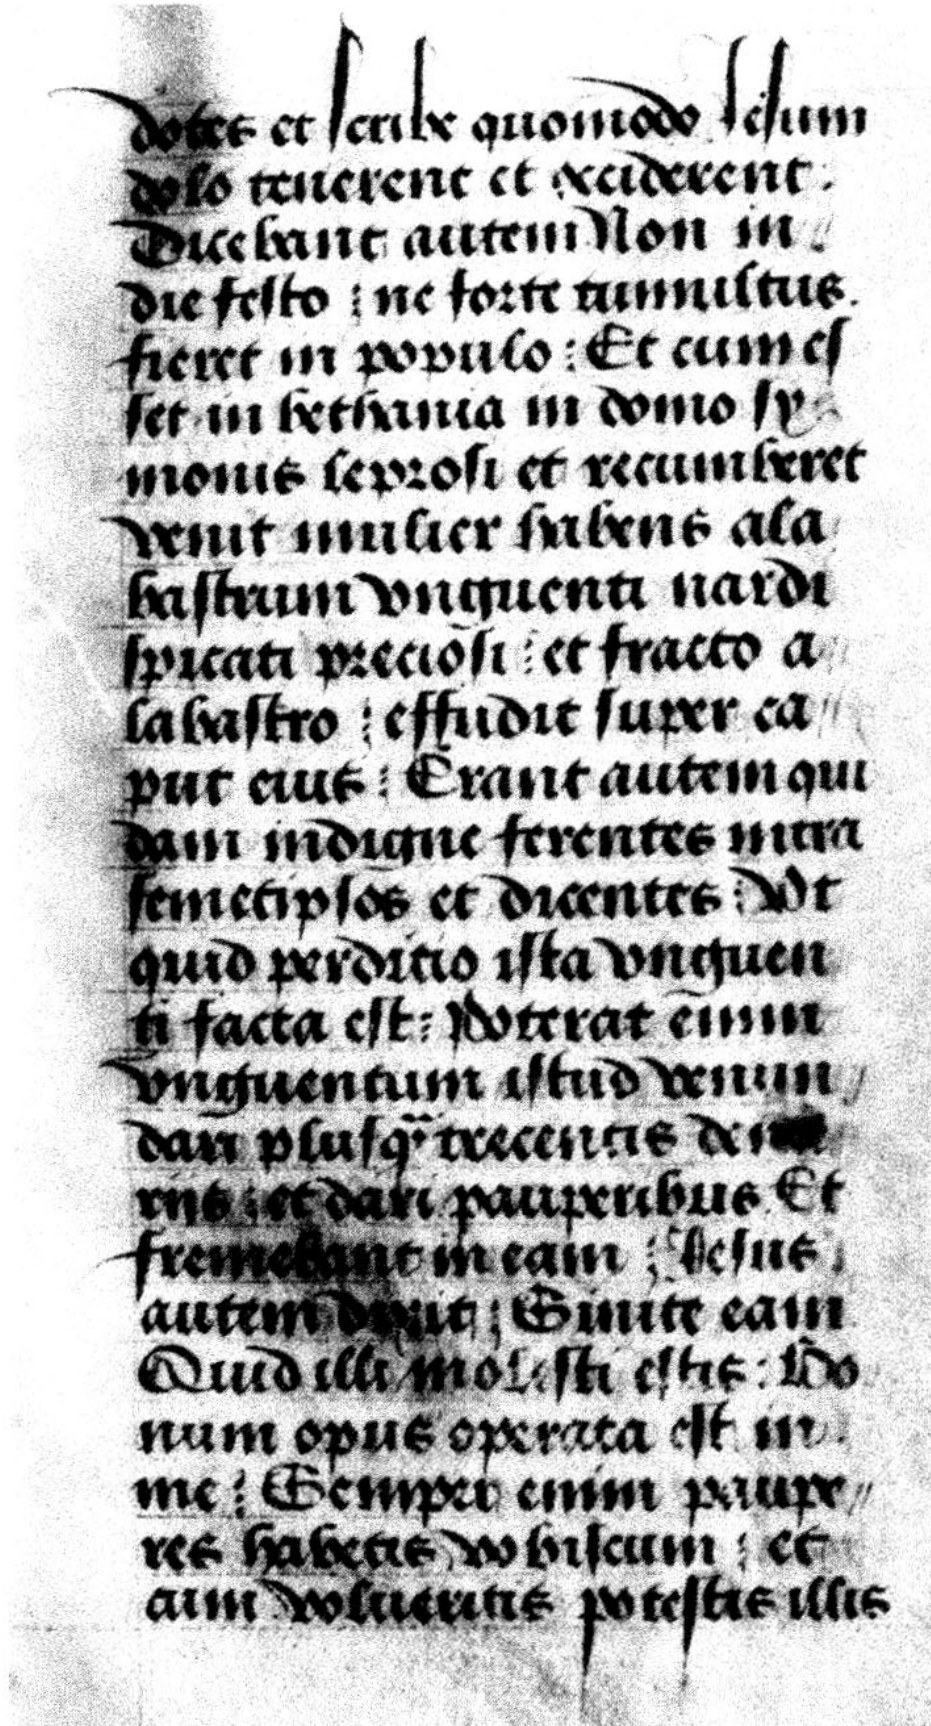 dotes et scribe quomodo Iesum
dolo tenerent et occiderent :
Dicebant autem Non in
die festo : ne forte tumultus
fieret in populo : Et cum es
set in bethania in domo sy
monis leprosi et recumberet
venit mulier habens ala
bastrum vnguenti nardi
spicati preciosi : et fracto a
labastro : effudit super ca
put eius : Erant autem qui
dam indigne ferentes intra
semetipsos et dicentes : Vt
quid perditio ista vnguen
ti facta est : Poterat enim
vnguentum istud venun
dari plusq̃ trecentis dena
riis : et dari pauperibus Et
fremebant in eam : Iesus
autem dixit : Sinite eam
Quid illi molesti estis : Bo
num opus operata est in
me : Semper enim paupe
res habetis vobiscum : et
cum volueritis potestis illis